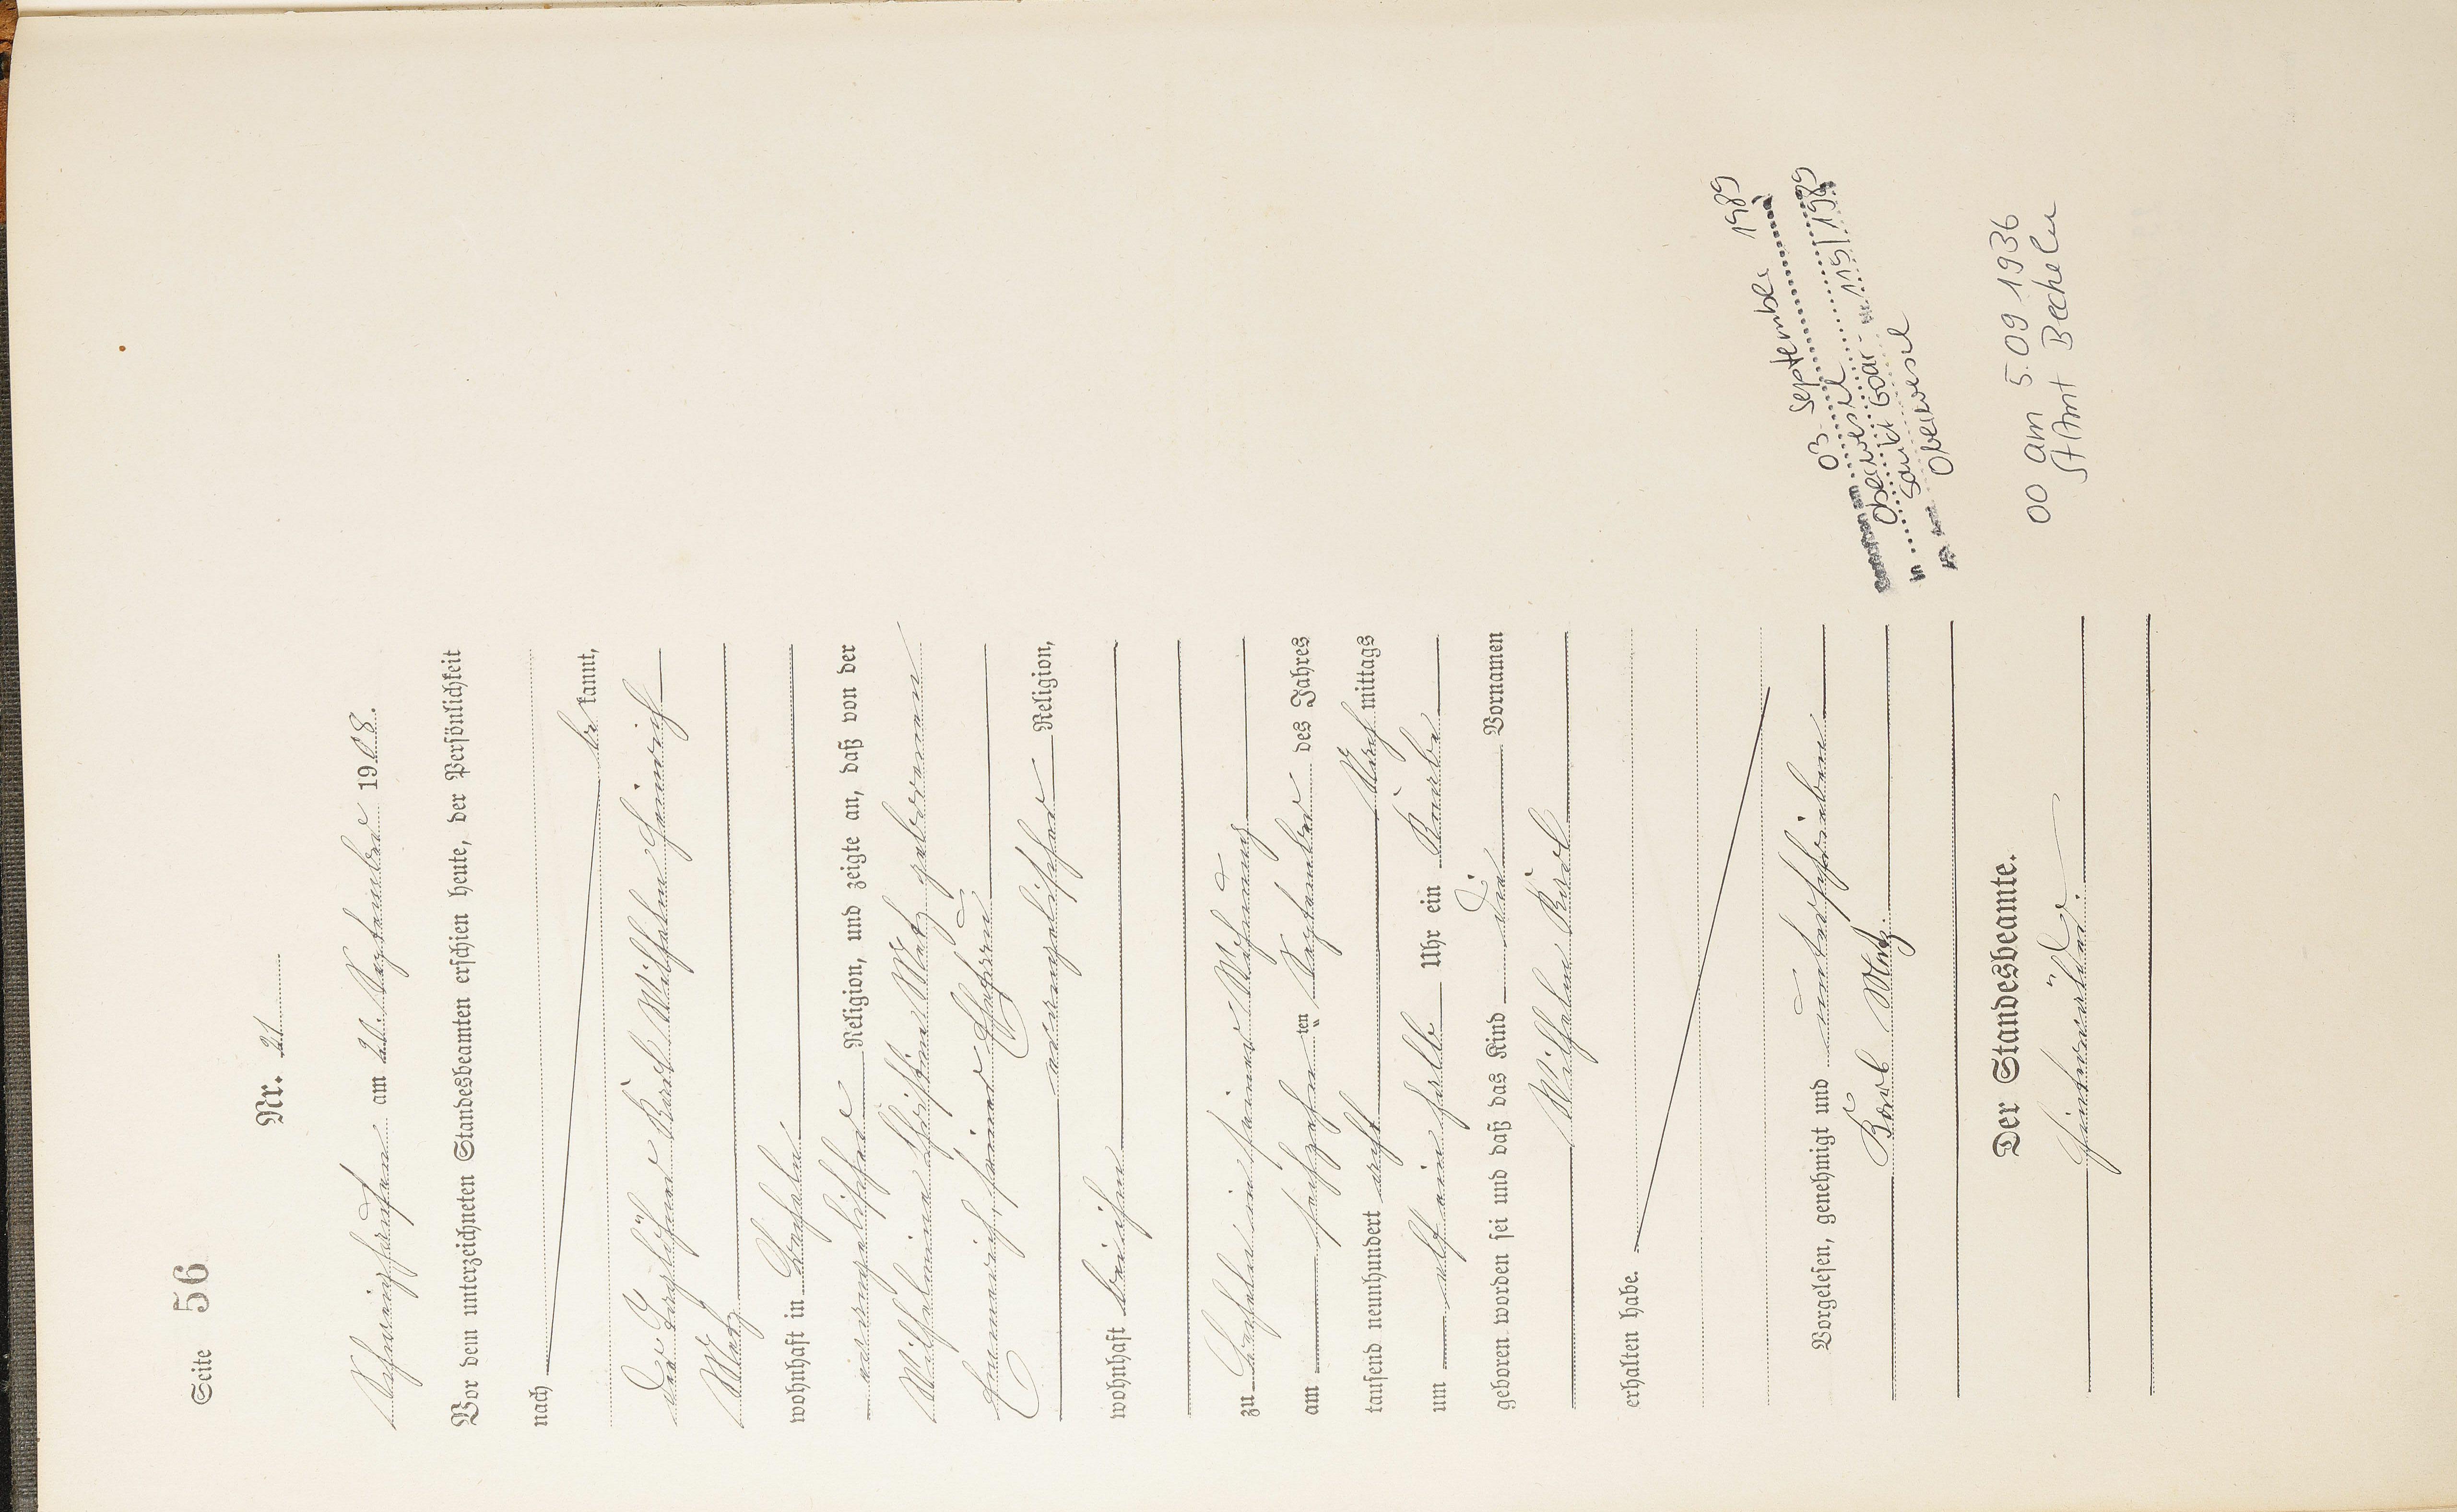 Seite 56
Nr. 21
Schweighausen am 20. September 1908.
Vor dem unterzeichneten Standesbeamten erschien heute, der Persönlichkeit
nach
be kannt,
der Karl Wilhelm Heinrich
Metz
wohnhaft in Becheln
evangelischer Religion, und zeigte an, daß von der
Wilhelmine Christine Metz geborenen
seiner Ehefrau
evangelischer Religion,
wohnhaft bei ihm
zu Becheln in seiner Wohnung
am sechzehn ten September des Jahres
tausend neunhundert acht Nach mittags
um elf ein halb Uhr ein Knabe
geboren worden sei und daß das Kind die Vornamen
Wilhelm Karl
erhalten habe.
Vorgelesen, genehmigt und unterschrieben
Karl Metz.
Der Standesbeamte.
03. September 1989
Oberwesel
Sankt Goar - 119/1989
Oberwesel
OO am 5.09.1936
StAmt Becheln